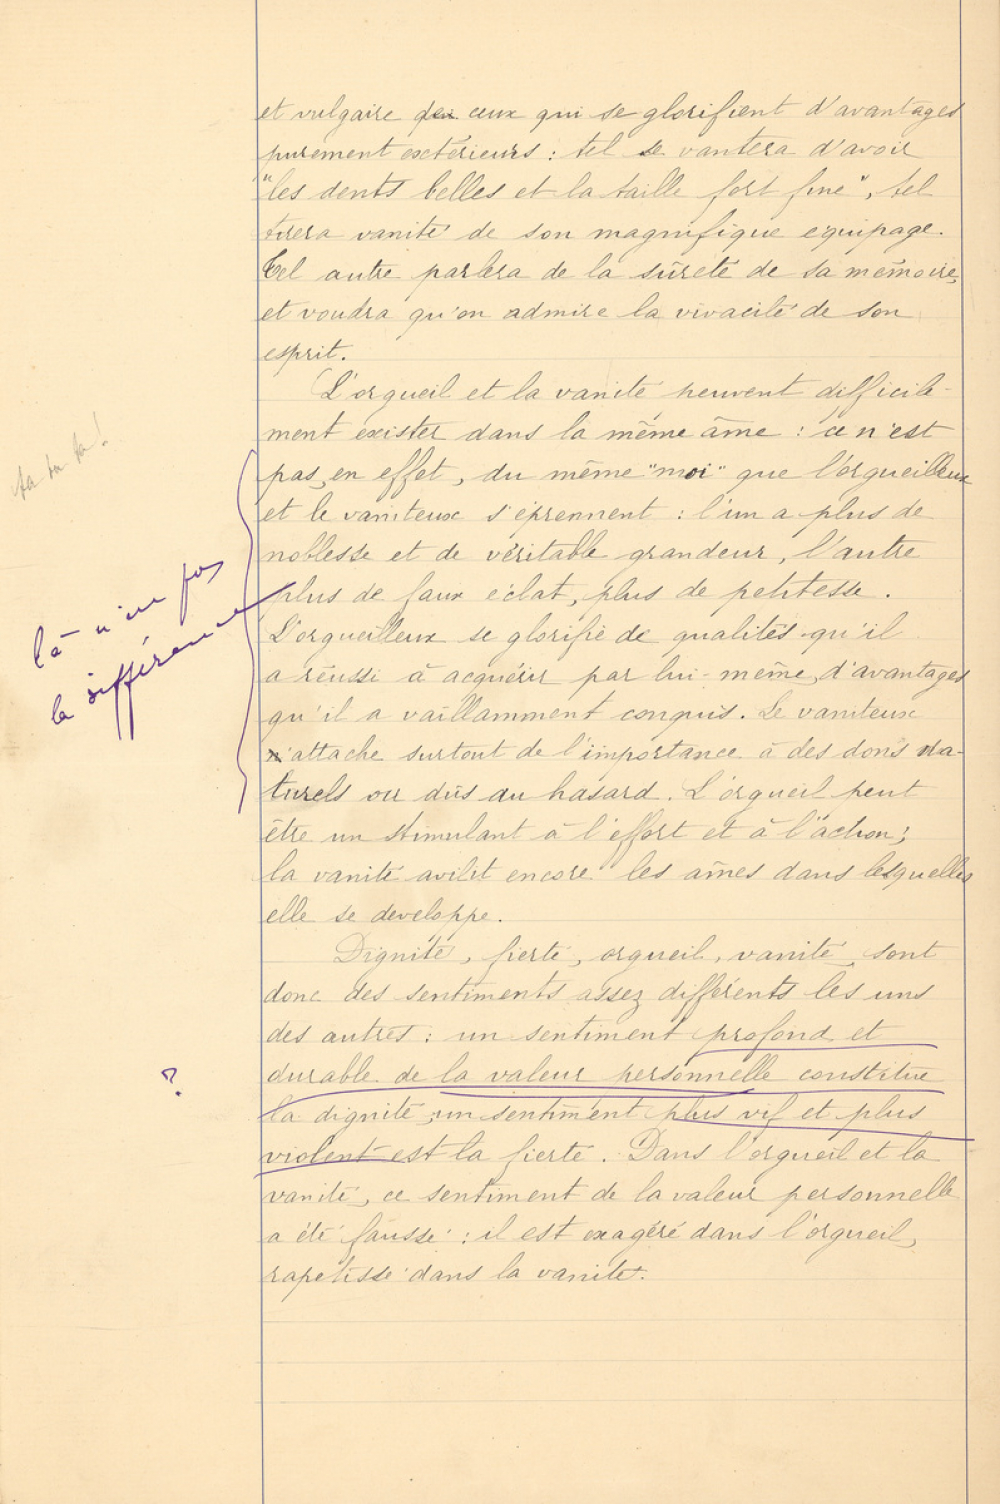 et vulgaire ceux qui se glorifient d'avantages
purement extérieurs : tel se vantera d'avoir
"les dents belles et la taille fort fine", tel
tirera vanité de son magnifique équipage.
Tel autre parlera de la sûreté de sa mémoire,
et voudra qu'on admire la vivacité de son
esprit.
L'orgueil et la vanité peuvent difficile-
ment exister dans la même âme : ce n'est
ta ta ta !
pas, en effet, du même "moi" que l'orgueilleux
et le vaniteux s'éprennent : l'un a plus de
noblesse et de véritable grandeur, l'autre
plus de faux éclat, plus de petitesse.
là n'est pas
la différence
L'orgueilleux se glorifie de qualités qu'il
a réussi à acquérir par lui-même, d'avantages
qu'il a vaillamment conquis. Le vaniteux
n'attache surtout de l'importance à des dons na-
turels ou dûs au hasard. L'orgueil peut
être un stimulant à l'effort et à l'action ;
la vanité avilit encore les âmes dans lesquelles
elle se développe.
Dignité, fierté, orgueil, vanité, sont
donc des sentiments assez différents les uns
des autres : un sentiment profond et
durable de la valeur personnelle constitue
?
la dignité, un sentiment plus vif et plus
violent est la fierté. Dans l'orgueil et la
vanité, ce sentiment de la valeur personnelle
a été faussé : il est exagéré dans l'orgueil,
rapetissé dans la vanité.